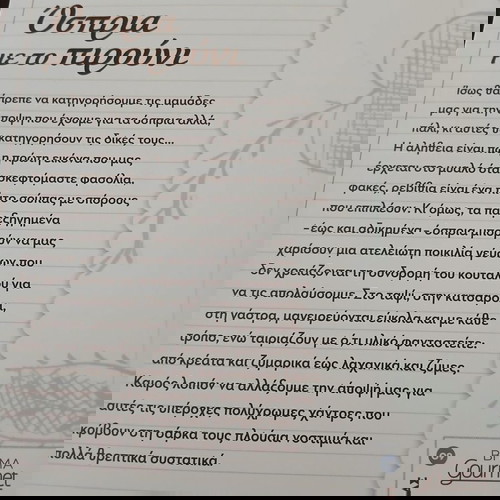 Όσπρια
με το πιρούνι
Ίσως θα
έπρεπε να κατηγορήσουμε τις μαμάδες
μας για την
άποψη που έχουμε για τα όσπρια αλλά,
πάλι κι αυτές
κατηγορήσουν τις δικές τους...
Η αλήθεια είναι πως
η πρώτη εικόνα που μας
έρχεται στο μυαλό όταν
σκεφτόμαστε φασόλια,
φακές, ρεβίθια είναι ένα
πιάτο σούπας με σπόρους
που επιπλέουν. Κι όμως, τα
–έως και αδικημένα– όσπρια μπορούν να μας
χαρίσουν μια ατελείωτη ποικιλία γεύσεων που
δεν χρειάζονται τη συνδρομή του κουταλιού για
να τις απολαύσουμε. Στο ταψί, στην κατσαρόλα,
στη γάστρα, μαγειρεύονται εύκολα και με κάθε
τρόπο, ενώ ταιριάζουν με ό,τι υλικό φανταστείτε:
από κρέατα και ζυμαρικά έως λαχανικά και ζύμες.
Καιρός λοιπόν να αλλάξουμε την άποψή μας για
αυτές τις υπέροχες πολύχρωμες χάντρες που
κρύβουν στη σάρκα τους πλούσια νοστιμιά και
πολλά θρεπτικά συστατικά.
Gourmet
3